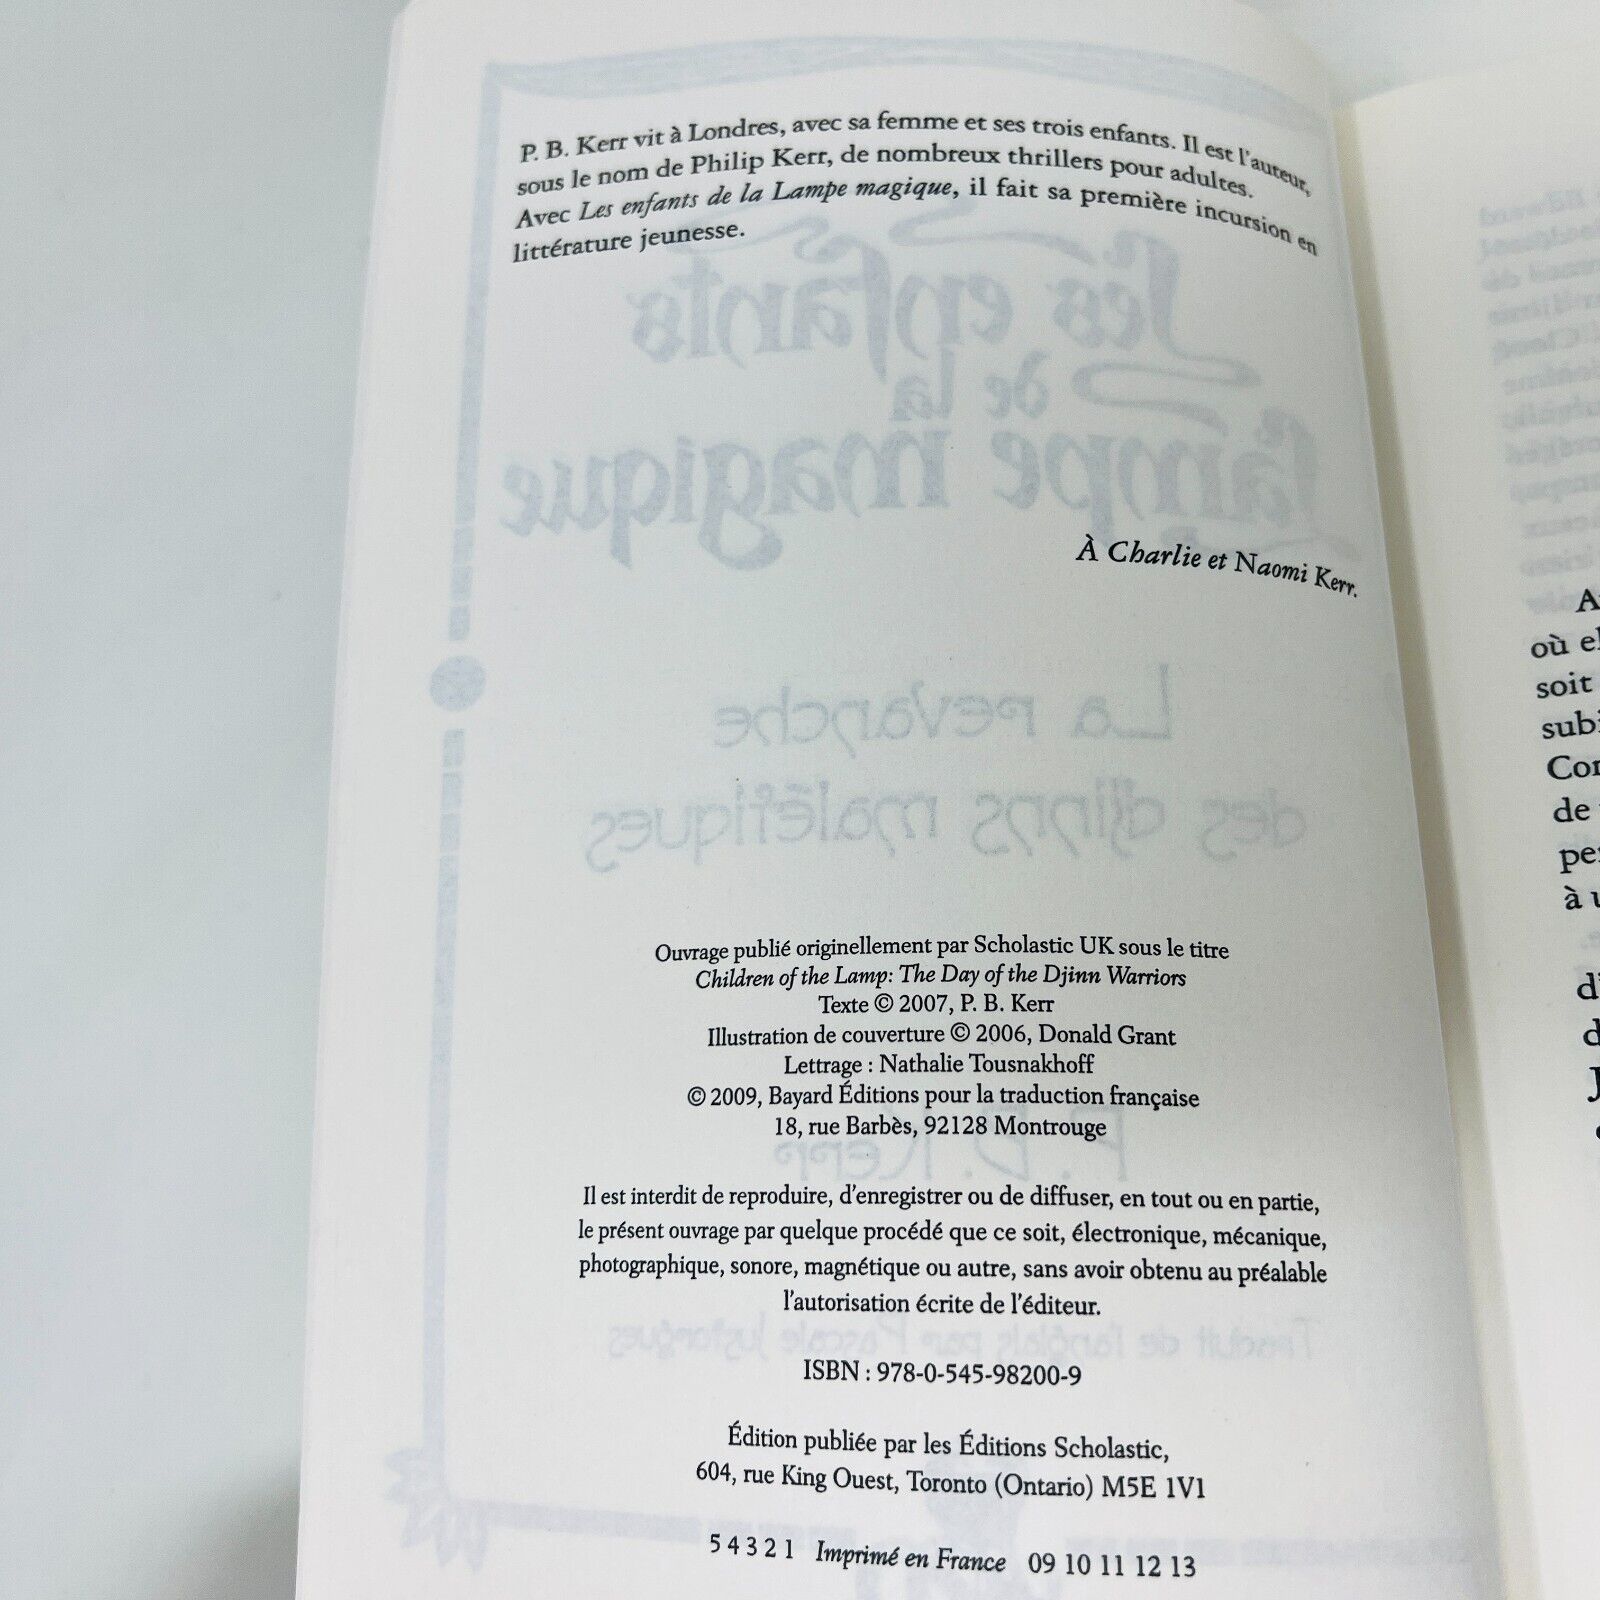 P. B. Kerr vit à Londres, avec sa femme et ses trois enfants. Il est l'auteur,
sous le nom de Philip Kerr, de nombreux thrillers pour adultes.
Avec Les enfants de la Lampe magique, il fait sa première incursion en
littérature jeunesse.
Les enfants
de la
Lampe magique
À Charlie et Naomi Kerr.
La revanche
des djinns maléfiques
Ouvrage publié originellement par Scholastic UK sous le titre
Children of the Lamp: The Day of the Djinn Warriors
Texte © 2007, P. B. Kerr
Illustration de couverture © 2006, Donald Grant
Lettrage : Nathalie Tousnakhoff
© 2009, Bayard Éditions pour la traduction française
18, rue Barbès, 92128 Montrouge
P. B. Kerr
Il est interdit de reproduire, d'enregistrer ou de diffuser, en tout ou en partie,
le présent ouvrage par quelque procédé que ce soit, électronique, mécanique,
photographique, sonore, magnétique ou autre, sans avoir obtenu au préalable
l'autorisation écrite de l'éditeur.
Traduit de l'anglais par Pascale Jusforgues
ISBN : 978-0-545-98200-9
Édition publiée par les Éditions Scholastic,
604, rue King Ouest, Toronto (Ontario) M5E 1V1
5 4 3 2 1 Imprimé en France 09 10 11 12 13
où
soit
de
à